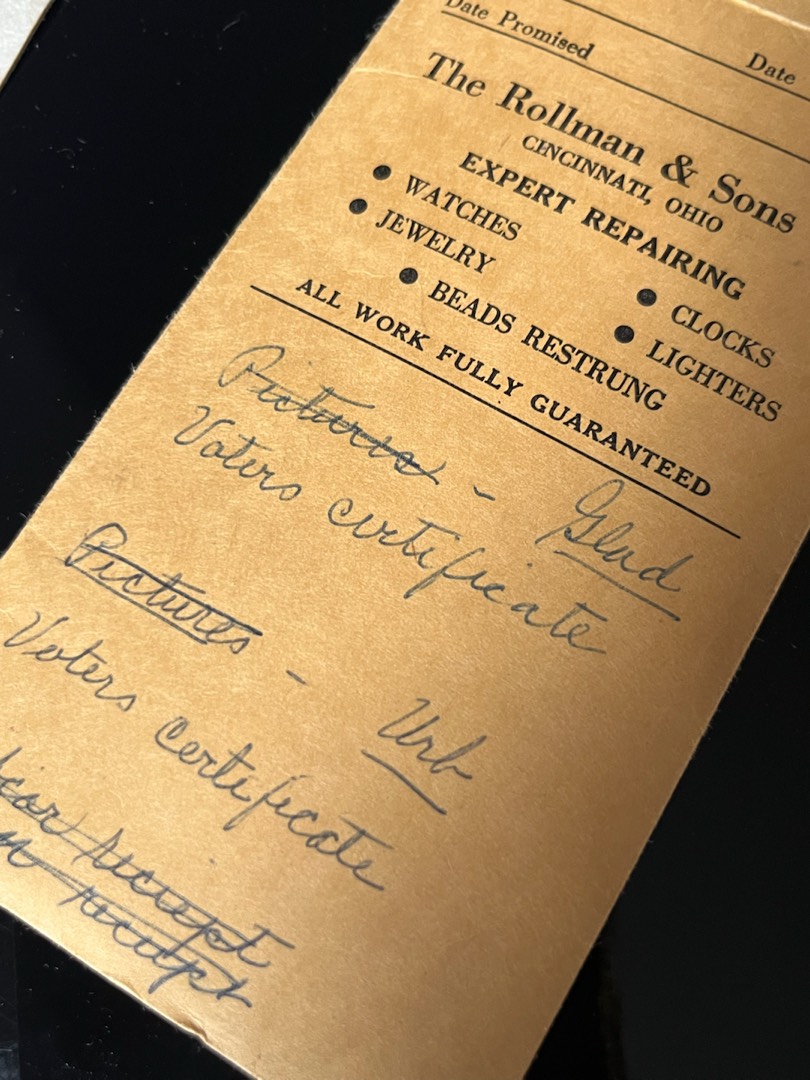 Date Promised Date
The Rollman & Sons
CINCINNATI, OHIO
EXPERT REPAIRING
● WATCHES ● CLOCKS
● JEWELRY ● LIGHTERS
● BEADS RESTRUNG
ALL WORK FULLY GUARANTEED
Pictures - Glad
Voters certificate
Pictures - Urb
Voters certificate
car receipt
receipt